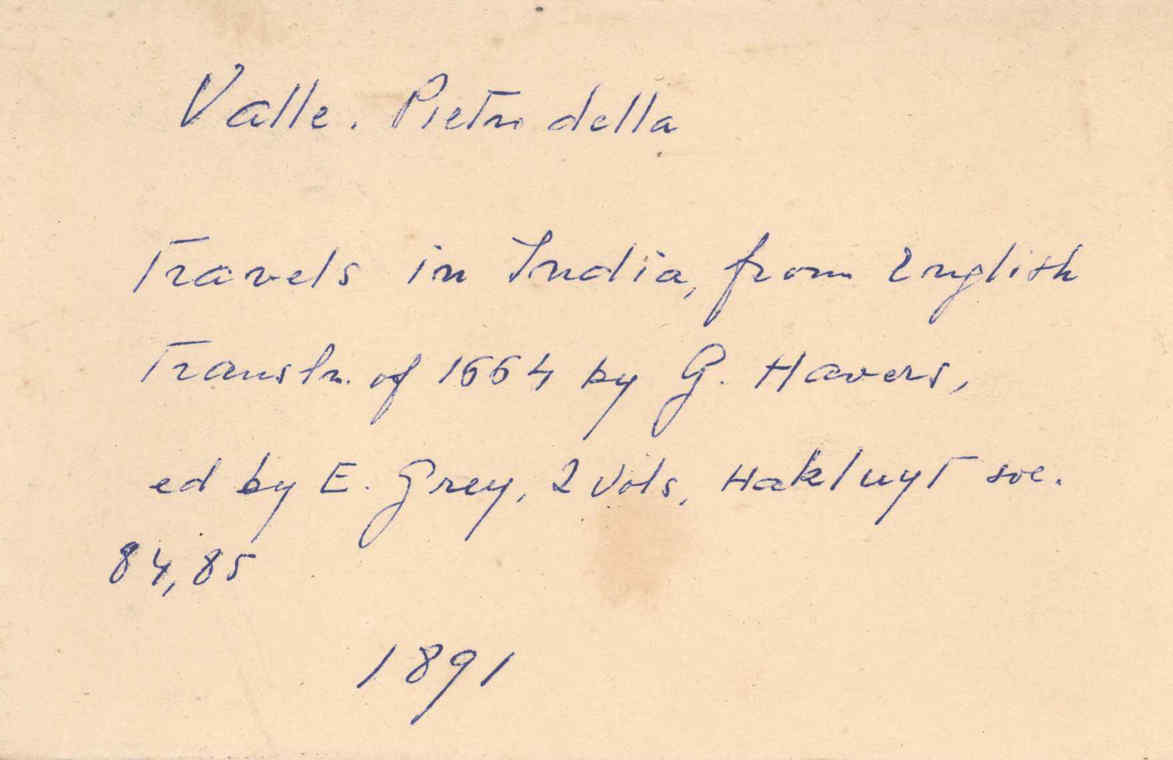 Valle. Pietro della
Travels in India, from English
Transln. of 1664 by G. Havers,
ed by E. Grey, 2 Vols, Hakluyt soc.
84, 85
1891